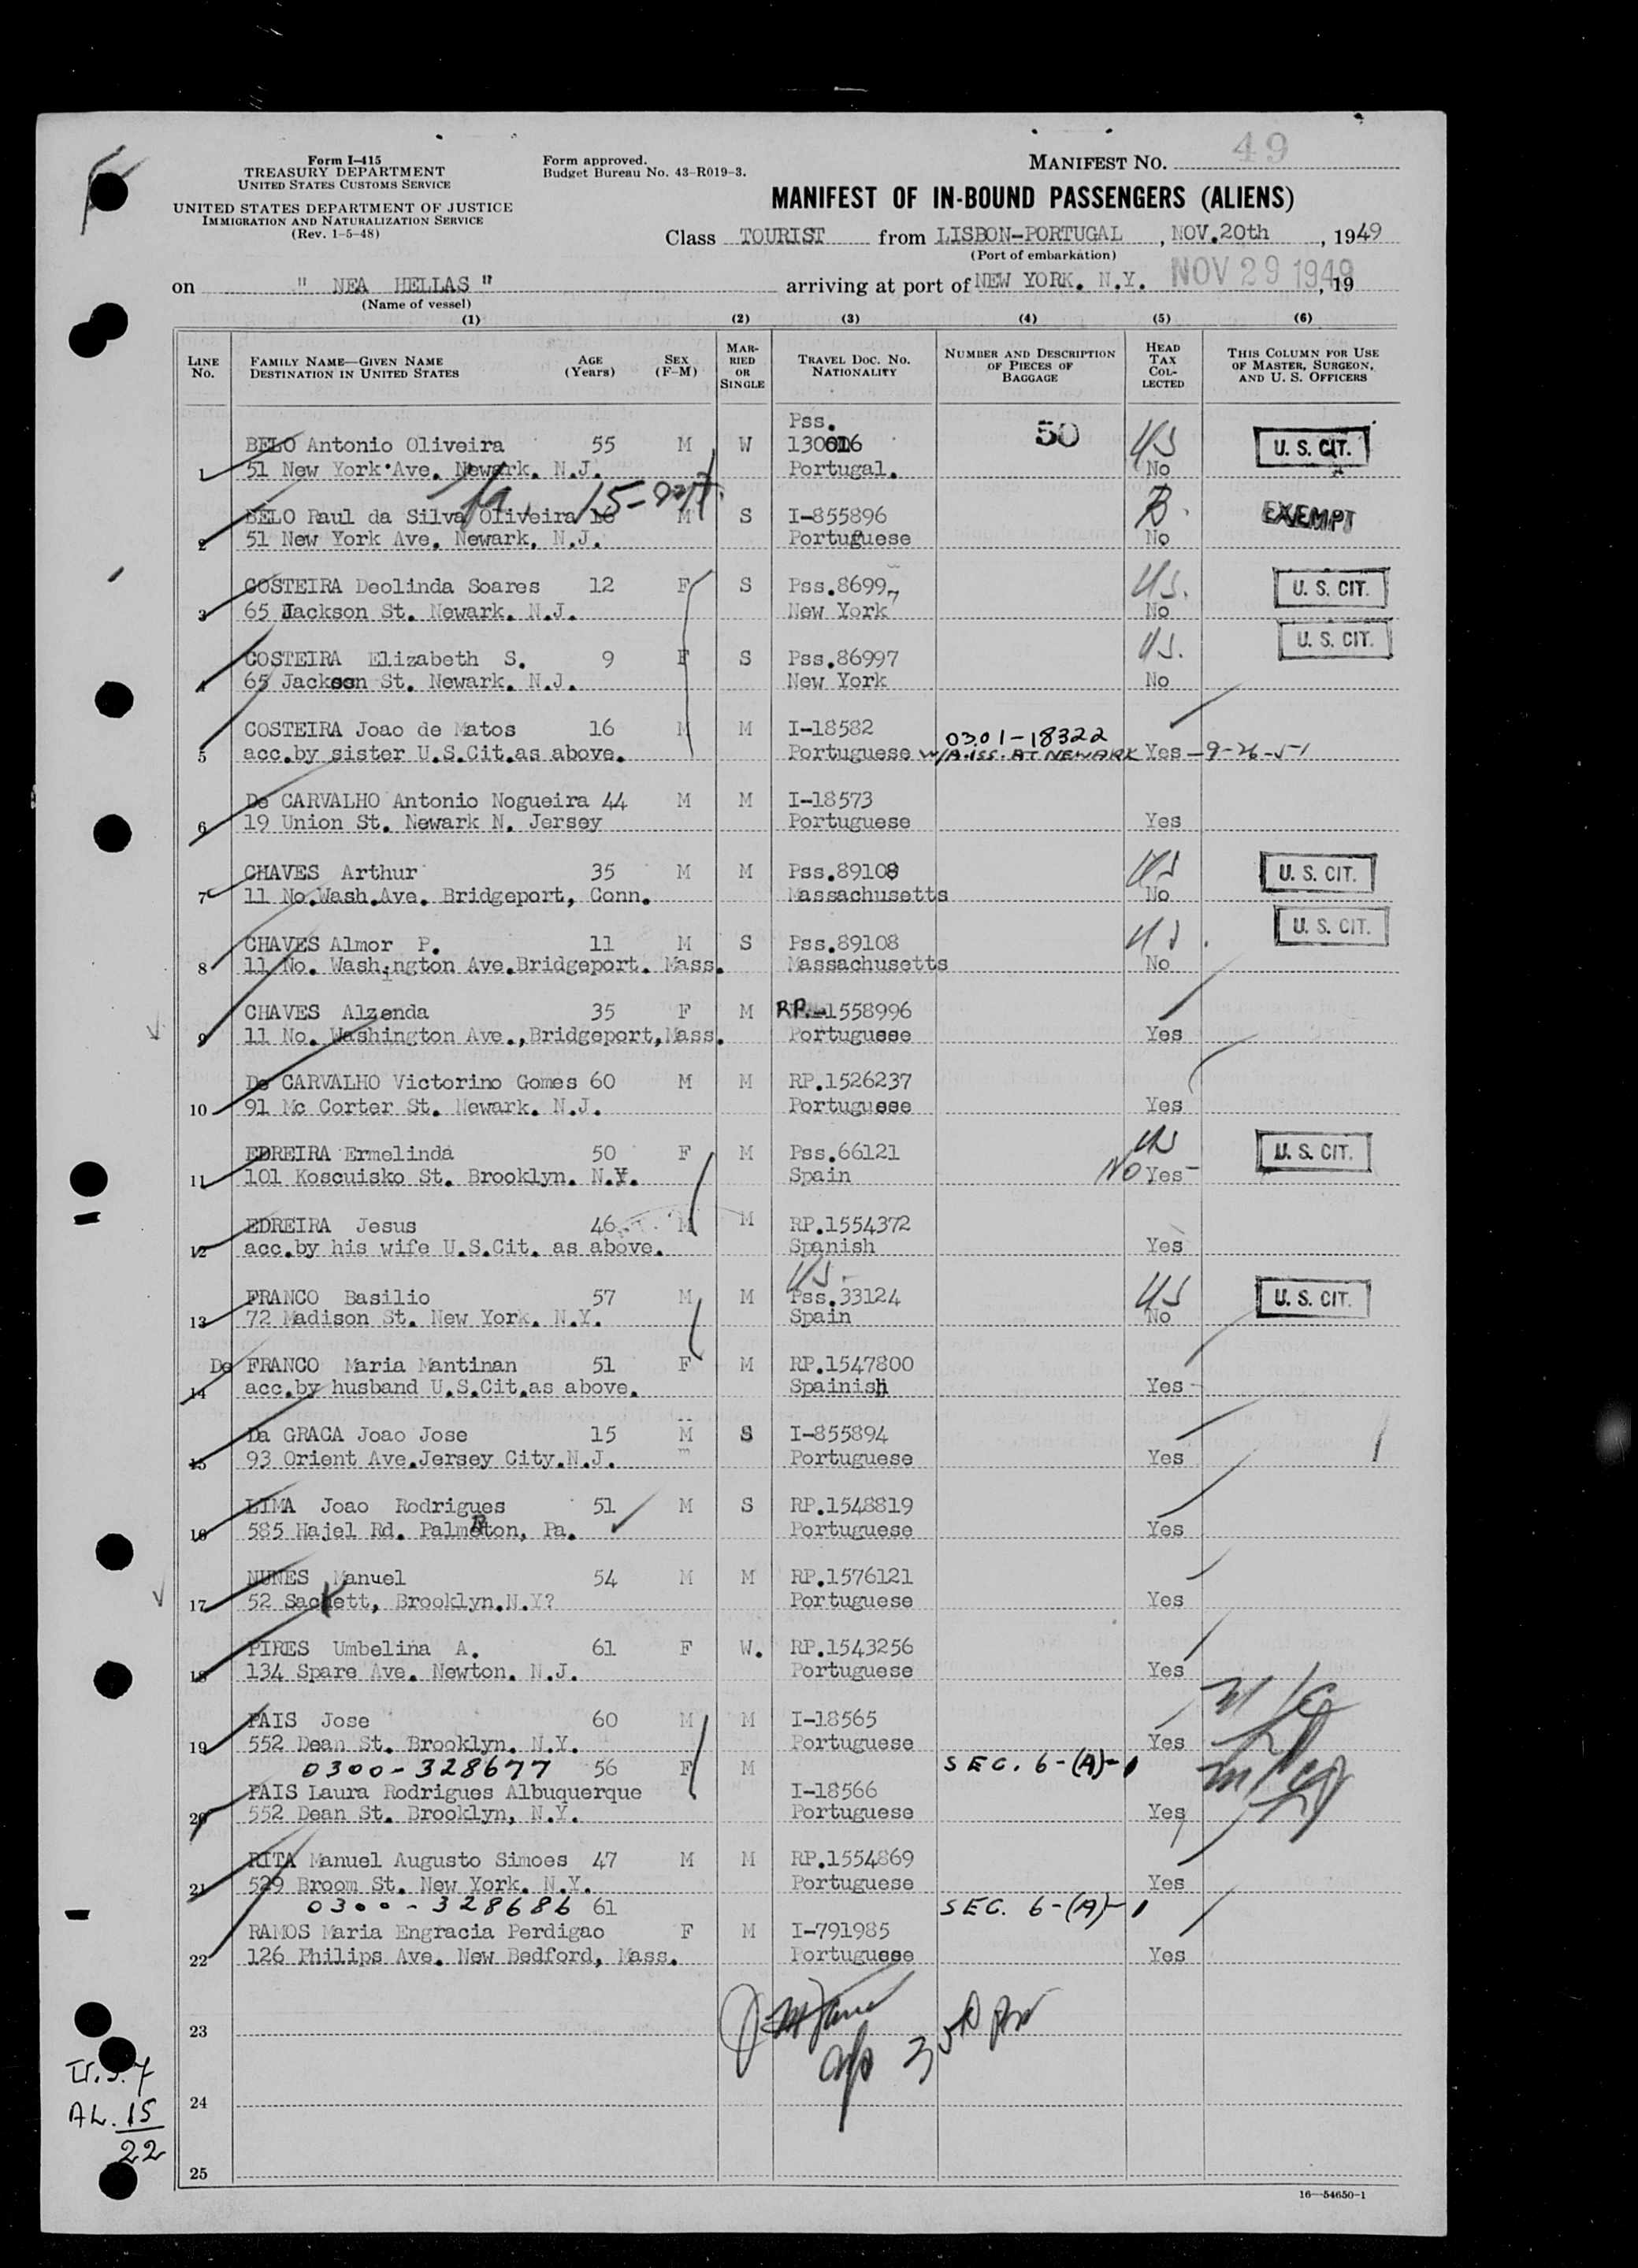 Form I-415
TREASURY DEPARTMENT
UNITED STATES CUSTOMS SERVICE
UNITED STATES DEPARTMENT OF JUSTICE
IMMIGRATION AND NATURALIZATION SERVICE
(Rev. 1-5-48)
Form approved.
Budget Bureau No. 43-R019-3.
MANIFEST NO. 49
MANIFEST OF IN-BOUND PASSENGERS (ALIENS)
Class TOURIST from LISBON-PORTUGAL, NOV.20th, 1949
(Port of embarkation)
on " NEA HELLAS " arriving at port of NEW YORK. N.Y. NOV 29 1949, 19
(Name of vessel)
(1) (2) (3) (4) (5) (6)
LINE NO. FAMILY NAME—GIVEN NAME DESTINATION IN UNITED STATES AGE (Years) SEX (F-M) MARRIED OR SINGLE TRAVEL DOC. NO. NATIONALITY NUMBER AND DESCRIPTION OF PIECES OF BAGGAGE HEAD TAX COLLECTED THIS COLUMN FOR USE OF MASTER, SURGEON, AND U. S. OFFICERS
Pss.
BELO Antonio Oliveira 55 M W 130016 50 US U. S. CIT.
1 51 New York Ave. Newark. N.J. Portugal. No
15-
BELO Raul da Silva Oliveira 16 M S I-855896 B. EXEMPT
2 51 New York Ave. Newark, N.J. Portuguese No
COSTEIRA Deolinda Soares 12 F S Pss.86997 US. U. S. CIT.
3 65 Jackson St. Newark. N.J. New York No
COSTEIRA Elizabeth S. 9 F S Pss.86997 US. U. S. CIT.
4 65 Jackson St. Newark. N.J. New York No
COSTEIRA Joao de Matos 16 M M I-18582 0301-18322
5 acc.by sister U.S.Cit.as above. Portuguese W/A.ISS. AT NEWARK Yes -9-26-51
De CARVALHO Antonio Nogueira 44 M M I-18573
6 19 Union St. Newark N. Jersey Portuguese Yes
CHAVES Arthur 35 M M Pss.89108 US U. S. CIT.
7 11 No.Wash.Ave. Bridgeport, Conn. Massachusetts No
CHAVES Almor P. 11 M S Pss.89108 US. U. S. CIT.
8 11 No. Washington Ave.Bridgeport. Mass. Massachusetts No
CHAVES Alzenda 35 F M RP.-1558996
9 11 No. Washington Ave.,Bridgeport,Mass. Portuguese Yes
De CARVALHO Victorino Gomes 60 M M RP.1526237
10 91 Mc Corter St. Newark. N.J. Portuguese Yes
EDREIRA Ermelinda 50 F M Pss.66121 US U. S. CIT.
11 101 Koscuisko St. Brooklyn. N.Y. Spain NO Yes
EDREIRA Jesus 46 M M RP.1554372
12 acc.by his wife U.S.Cit. as above. Spanish Yes
US.
FRANCO Basilio 57 M M Pss.33124 US U. S. CIT.
13 72 Madison St. New York. N.Y. Spain No
De FRANCO Maria Mantinan 51 F M RP.1547800
14 acc.by husband U.S.Cit.as above. Spainish Yes
Da GRACA Joao Jose 15 M S I-855894
15 93 Orient Ave.Jersey City.N.J. Portuguese Yes
LIMA Joao Rodrigues 51 M S RP.1548819
16 585 Hajel Rd. Palmerton, Pa. Portuguese Yes
NUNES Manuel 54 M M RP.1576121
17 52 Sackett, Brooklyn.N.Y? Portuguese Yes
PIRES Umbelina A. 61 F W. RP.1543256
18 134 Spare Ave. Newton. N.J. Portuguese Yes
PAIS Jose 60 M M I-18565
19 552 Dean St. Brooklyn. N.Y. Portuguese Yes
0300-328677 56 F M SEC. 6-(A)-1
PAIS Laura Rodrigues Albuquerque I-18566
20 552 Dean St. Brooklyn, N.Y. Portuguese Yes
RITA Manuel Augusto Simoes 47 M M RP.1554869
21 529 Broom St. New York. N.Y. Portuguese Yes
0300-328686 61 SEC. 6-(A)-1
RAMOS Maria Engracia Perdigao F M I-791985
22 126 Philips Ave. New Bedford, Mass. Portuguese Yes
23
24
25
U.S. 7
AL. 15
22
16—54650-1